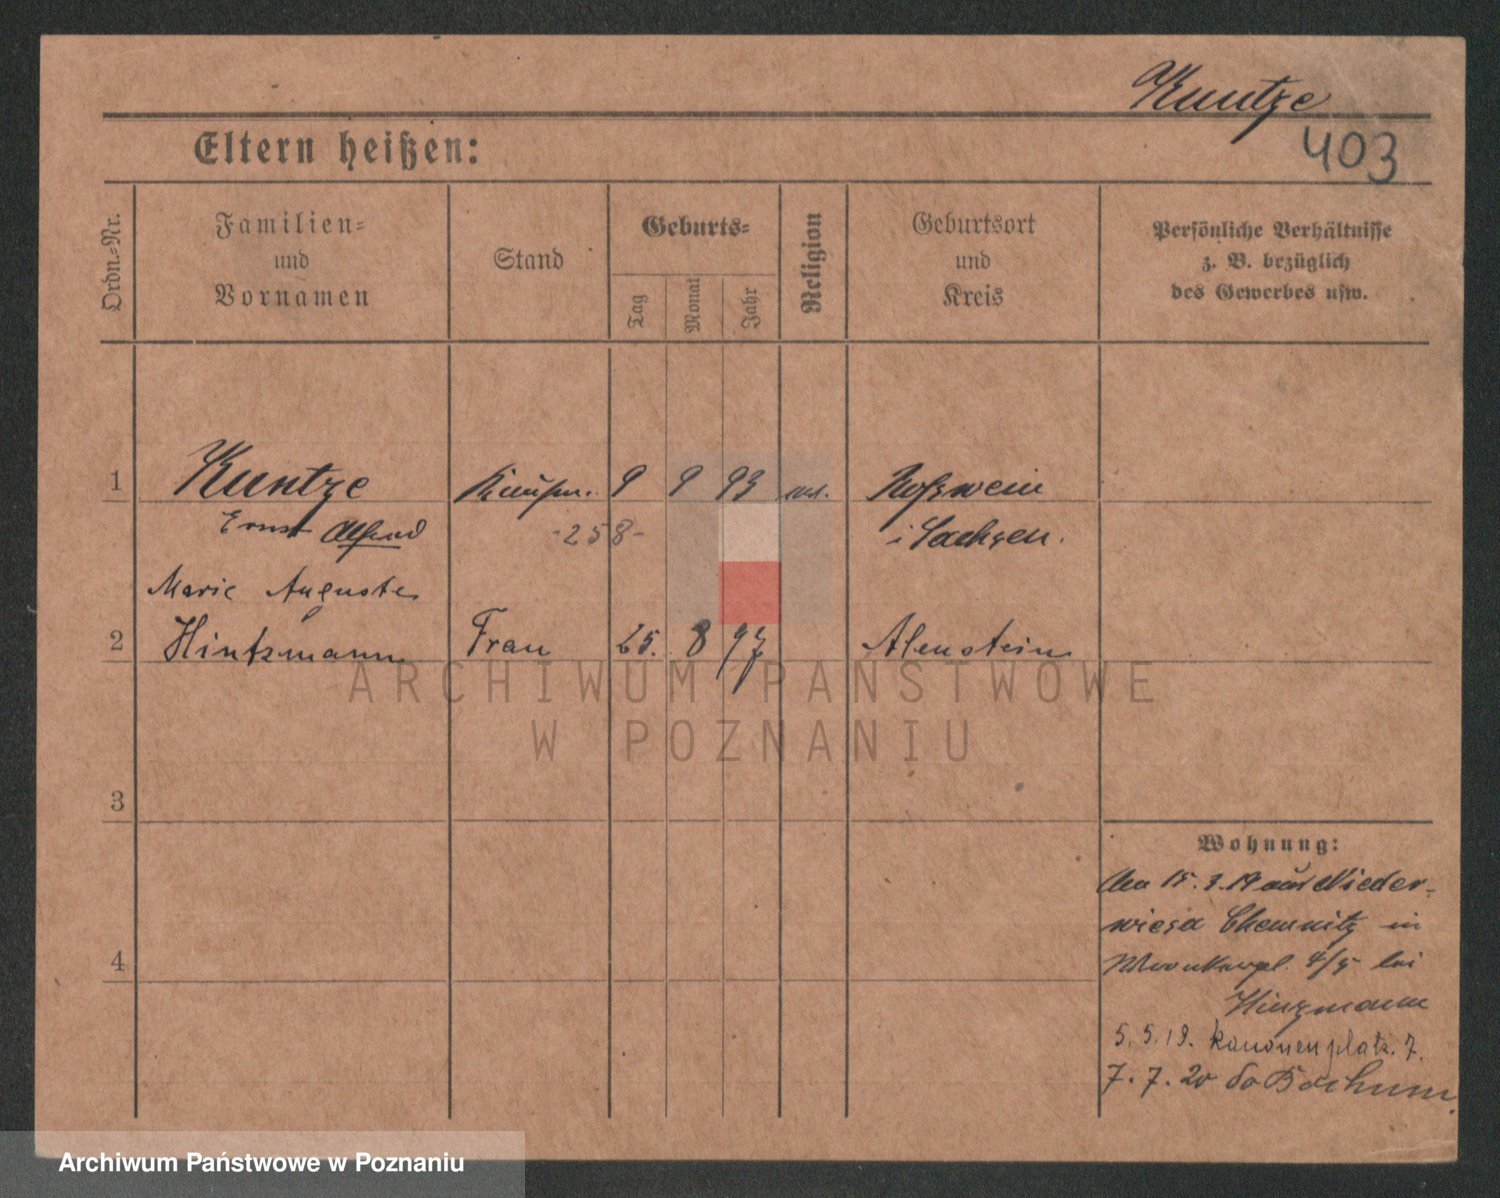 Kuntze
403
Eltern heißen:
Ordn.-Nr.
Familien-
und
Vornamen
Stand
Geburts-
Tag
Monat
Jahr
Religion
Geburtsort
und
Kreis
Persönliche Verhältnisse
z. B. bezüglich
des Gewerbes usw.
1 Kuntze Kaufm. 9 9 93 Roßwein
Ernst Alfred -258- i Sachsen.
Marie Auguste
2 Hintzmann Frau 25. 8 97 Alenstein
ARCHIWUM PAŃSTWOWE
W POZNANIU
3
Wohnung:
Am 15. 3. 19 aus Nieder-
wiesa Chemnitz in
4 4/5 bei
Hinzmann
5. 5. 19. Kanonenplatz. 7.
7. 7. 20 Bochum.
Archiwum Państwowe w Poznaniu